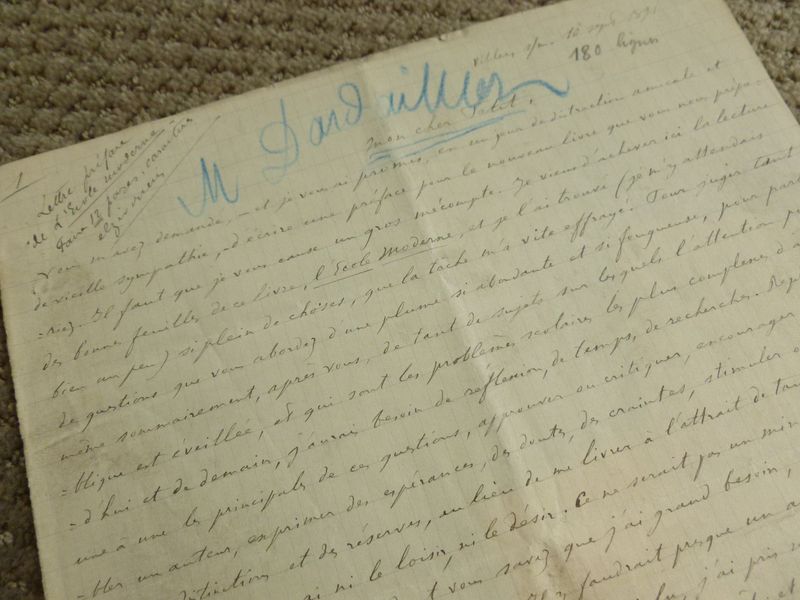 Villers s/m 10 sept 1891
180 lignes
M Dardaillon
1
Lettre préface
de L'Ecole moderne
Faire 13 pages, caractère
elzévirien
Mon cher Petit,
Vous m'avez demandé, et je vous ai promis, en un jour de distraction amicale et
de vieille sympathie, d'écrire une préface pour le nouveau livre que vous nous prépa-
=riez. Il faut que je vous cause un gros mécompte. Je viens d'achever ici la lecture
des bonnes feuilles de ce livre, l'Ecole Moderne, et je l'ai trouvé (je m'y attendais
bien un peu) si plein de choses, que la tâche m'a vite effrayé. Pour juger tant
de questions que vous abordez d'une plume si abondante et si fougueuse, pour parler
même sommairement, après vous, de tant de sujets sur lesquels l'attention pu-
=blique est éveillée, et qui sont les problèmes scolaires les plus complexes d'a
=d'hui et de demain, j'aurais besoin de réflexion, de temps, de recherches.
une à une les principales de ces questions, approuver ou critiquer, encourager
=bler un auteur, exprimer des espérances, des doutes, des craintes, stimuler
distinctions et des réserves, au lieu de me livrer à l'attrait de tout
si ni le loisir, ni le désir. Ce ne serait pas un min
vous savez que j'ai grand besoin,
faudrait presque un a
j'ai pris